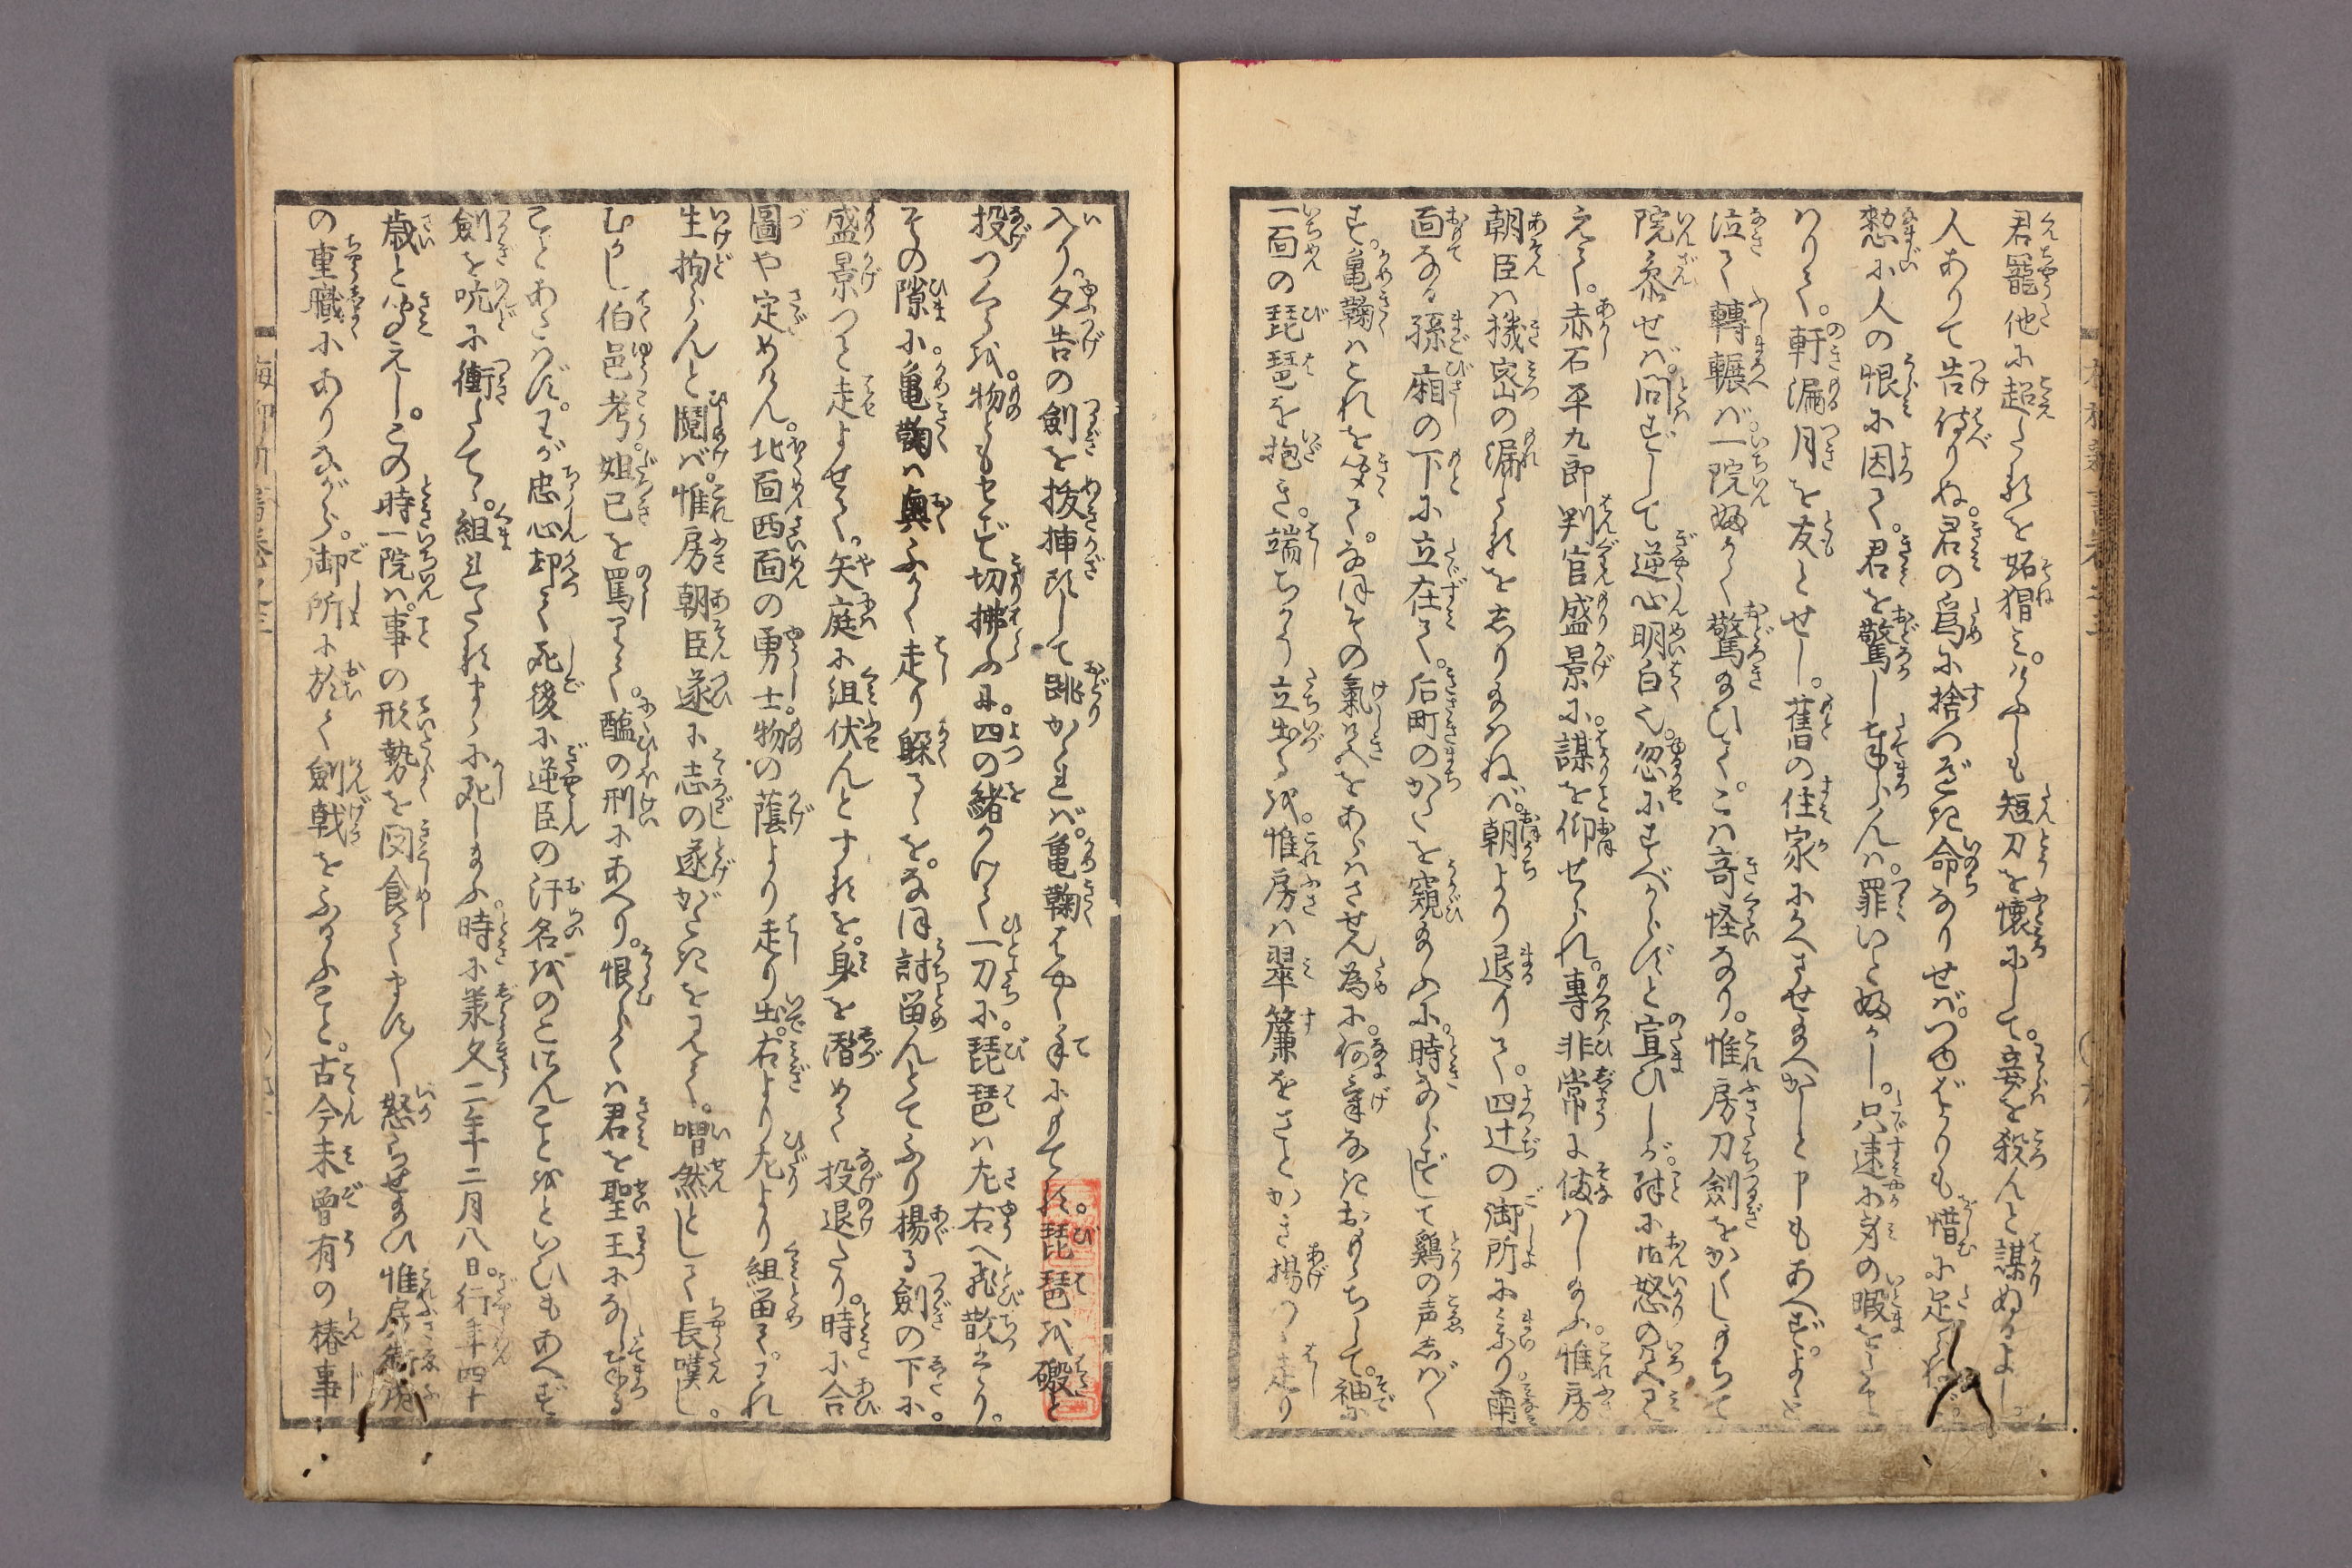 君寵他に超たるを妬猾み。けふしも短刀を懐にして。妾を殺んと謀ぬるよし
人ありて告侍りぬ。君の為に捨つべき命なりせば。つゆばかりも惜に足らねど。
愁に人の恨に因て。君を驚し奉らんは。罪いと妬かし。只速に身の暇をたま
はりて。軒漏月を友とせし。舊の住家にかへさせ給へかしと申もあへず。よゝと
泣て轉輾ば。一院妬く驚き給ひて。こは奇怪なり。惟房刀劍をかくしもちて
院参せば。問ずして逆心明白也。忽にすべからずと宣ひしが。殊に御怒の色見
えて。赤石平九郎判官盛景に。謀を仰せられ。專非常に俻はし給ふ。惟房
朝臣は機密の漏たるをしり給はねば。朝より退りて。四辻の御所に参り。南
面なる孫廂の下に立在て。后町のかたを窺給ふに。時ならずして鶏の声しば〳〵
す。亀鞠はこれを聞て。なほその氣色をあらはさせん為に。何氣なきおももちして。袖に
一面の琵琶を抱き。端ちかう立出るを。惟房は翠簾をさとかき揚つゝ走り
入り。夕告の劍を抜挿頭して跳かゝれば。亀鞠はやく手にもてる。琵琶を礑と
投つくるを。物ともせず切拂ふに。四の緒かけて一刀に。琵琶は左右へ飛散たり。
その隙に。亀鞠は奥ふかく走り躱るゝを。なほ討留んとてふり揚る劍の下に。
盛景つと走よせて。矢庭に組伏んとするを。身を潜めて投退たり。時に合
圖や定めけん。北面西面の勇士。物の蔭より走り出。右より左より組留て。これ
生拘らんと鬩ば。惟房朝臣遂に志の遂がたきをみて。喟然として長嘆し。
むかし伯邑考。妲己を罵りて。醢の刑にあへり。恨らくは君を聖王になし奉る
ことあたはず。わが忠心却て死後に逆臣の汙名をのこさんことをといひもあへず
劍を吭に衝たて。組れたるまゝに死し給ふ。時に承久二年十二月八日。行年四十
歳と聞えし。この時一院は。事の形勢を聞食てます〳〵怒らせ給ひ惟房
の重職にありながら。御所に於て劍戟をふるふこと。古今未曾有の椿事